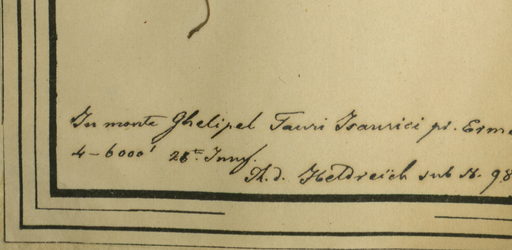 In monte Ghelipel Tauri Isaurici pr. Erme
4-6000' 28te Juny.
Th. d. Heldreich sub N. 98